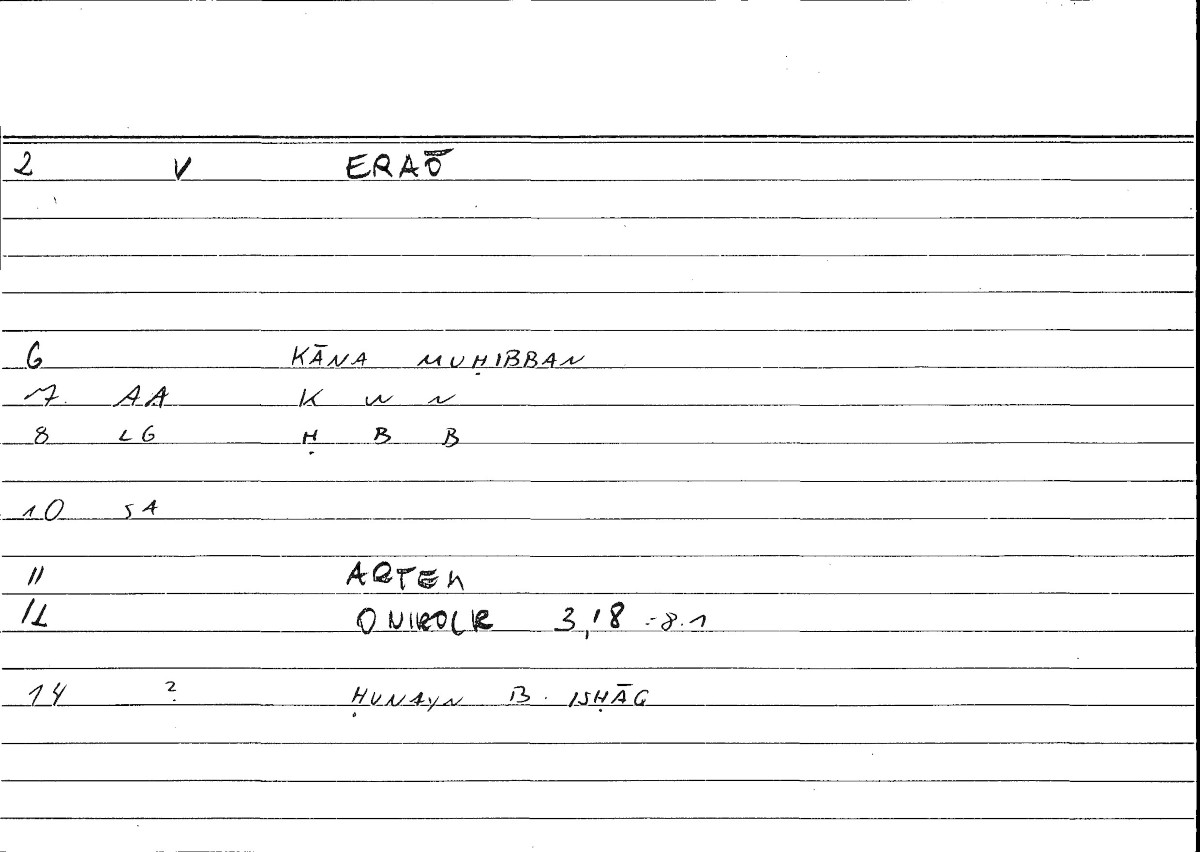 2 V ERAŌ
6 KĀNA MUḤIBBAN
7. AA K W N
8 LG Ḥ B B
10 SA
11 ARTEM
12 ONIROCR 3,18 -8.1
14 ? ḤUNAYN B. ISḤĀQ